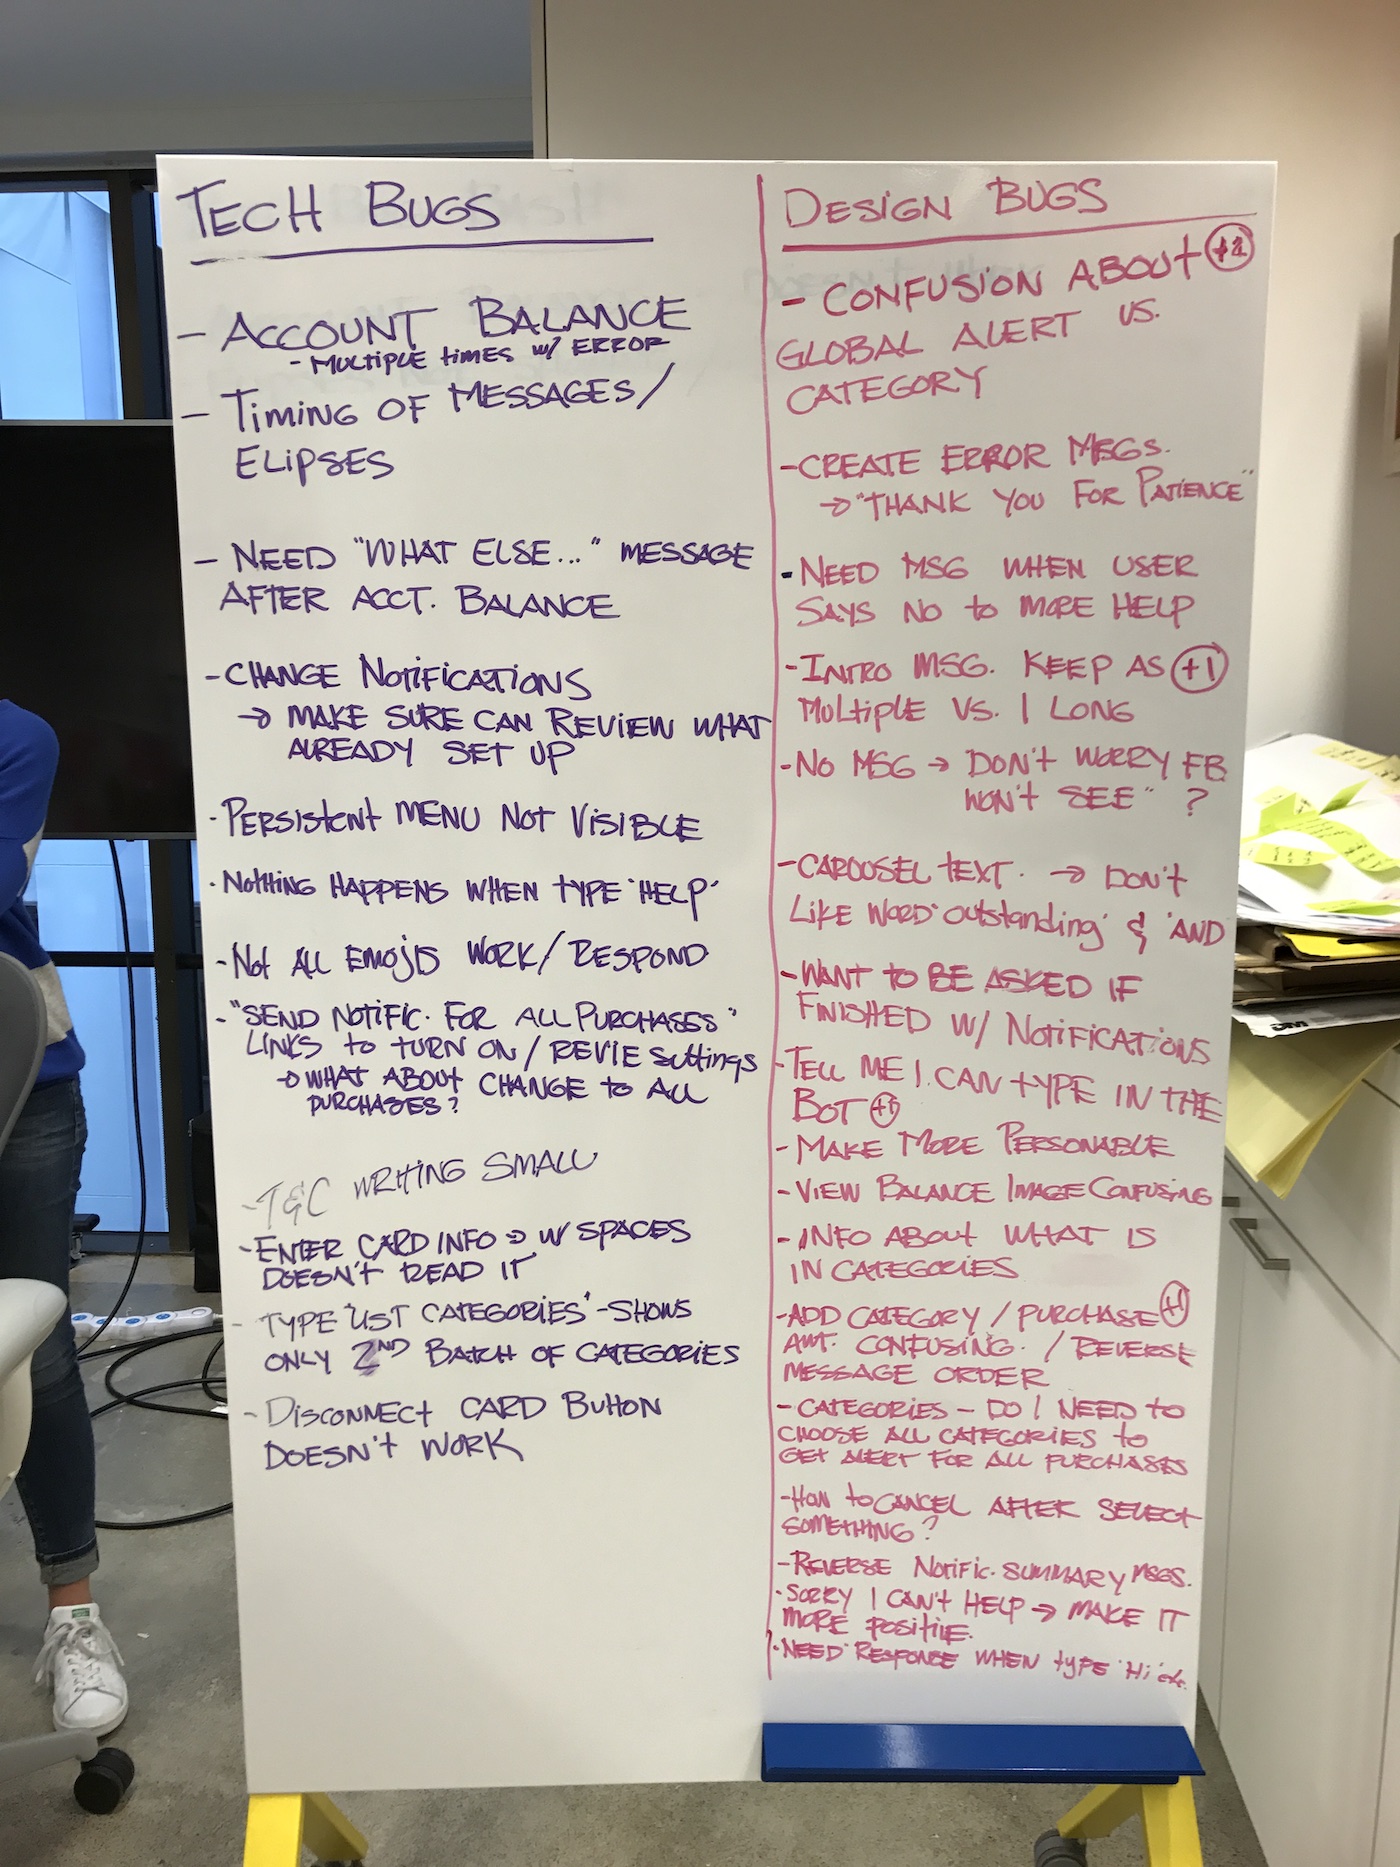 TECH BUGS
- ACCOUNT BALANCE
- MULTIPLE times w/ ERROR
- TIMING OF MESSAGES/
ELIPSES
- NEED "WHAT ELSE..." MESSAGE
AFTER ACCT. BALANCE
- CHANGE NOTIFICATIONS
→ MAKE SURE CAN REVIEW WHAT
ALREADY SET UP
- PERSISTENT MENU NOT VISIBLE
- NOTHING HAPPENS WHEN TYPE 'HELP'
- NOT ALL EMOJIS WORK/RESPOND
- "SEND NOTIFIC. FOR ALL PURCHASES"
LINKS TO TURN ON/REVIE SETTINGS
→ WHAT ABOUT CHANGE TO ALL
PURCHASES?
- T&C WRITING SMALL
- ENTER CARD INFO → W/ SPACES
DOESN'T READ IT
- TYPE "LIST CATEGORIES" - SHOWS
ONLY 2ND BATCH OF CATEGORIES
- DISCONNECT CARD BUTTON
DOESN'T WORK
DESIGN BUGS
- CONFUSION ABOUT
GLOBAL ALERT VS.
CATEGORY
- CREATE ERROR MSGS.
→ "THANK YOU FOR PATIENCE"
- NEED MSG WHEN USER
SAYS NO TO MORE HELP
- INTRO MSG. KEEP AS +1
MULTIPLE VS. 1 LONG
- NO MSG → DON'T WORRY FB
WON'T SEE" ?
- CAROUSEL TEXT. → DON'T
LIKE WORD 'OUTSTANDING' & 'AND
- WANT TO BE ASKED IF
FINISHED W/ NOTIFICATIONS
- TELL ME I CAN TYPE IN THE
BOT +1
- MAKE MORE PERSONABLE
- VIEW BALANCE IMAGE CONFUSING
- INFO ABOUT WHAT IS
IN CATEGORIES
- ADD CATEGORY / PURCHASE +1
AMT. CONFUSING. / REVERSE
MESSAGE ORDER
- CATEGORIES - DO I NEED TO
CHOOSE ALL CATEGORIES TO
GET ALERT FOR ALL PURCHASES
- HOW TO CANCEL AFTER SELECT
SOMETHING?
- REVERSE NOTIFIC. SUMMARY MSGS.
- SORRY I CAN'T HELP → MAKE IT
MORE POSITIVE.
- NEED RESPONSE WHEN TYPE 'HI' etc.